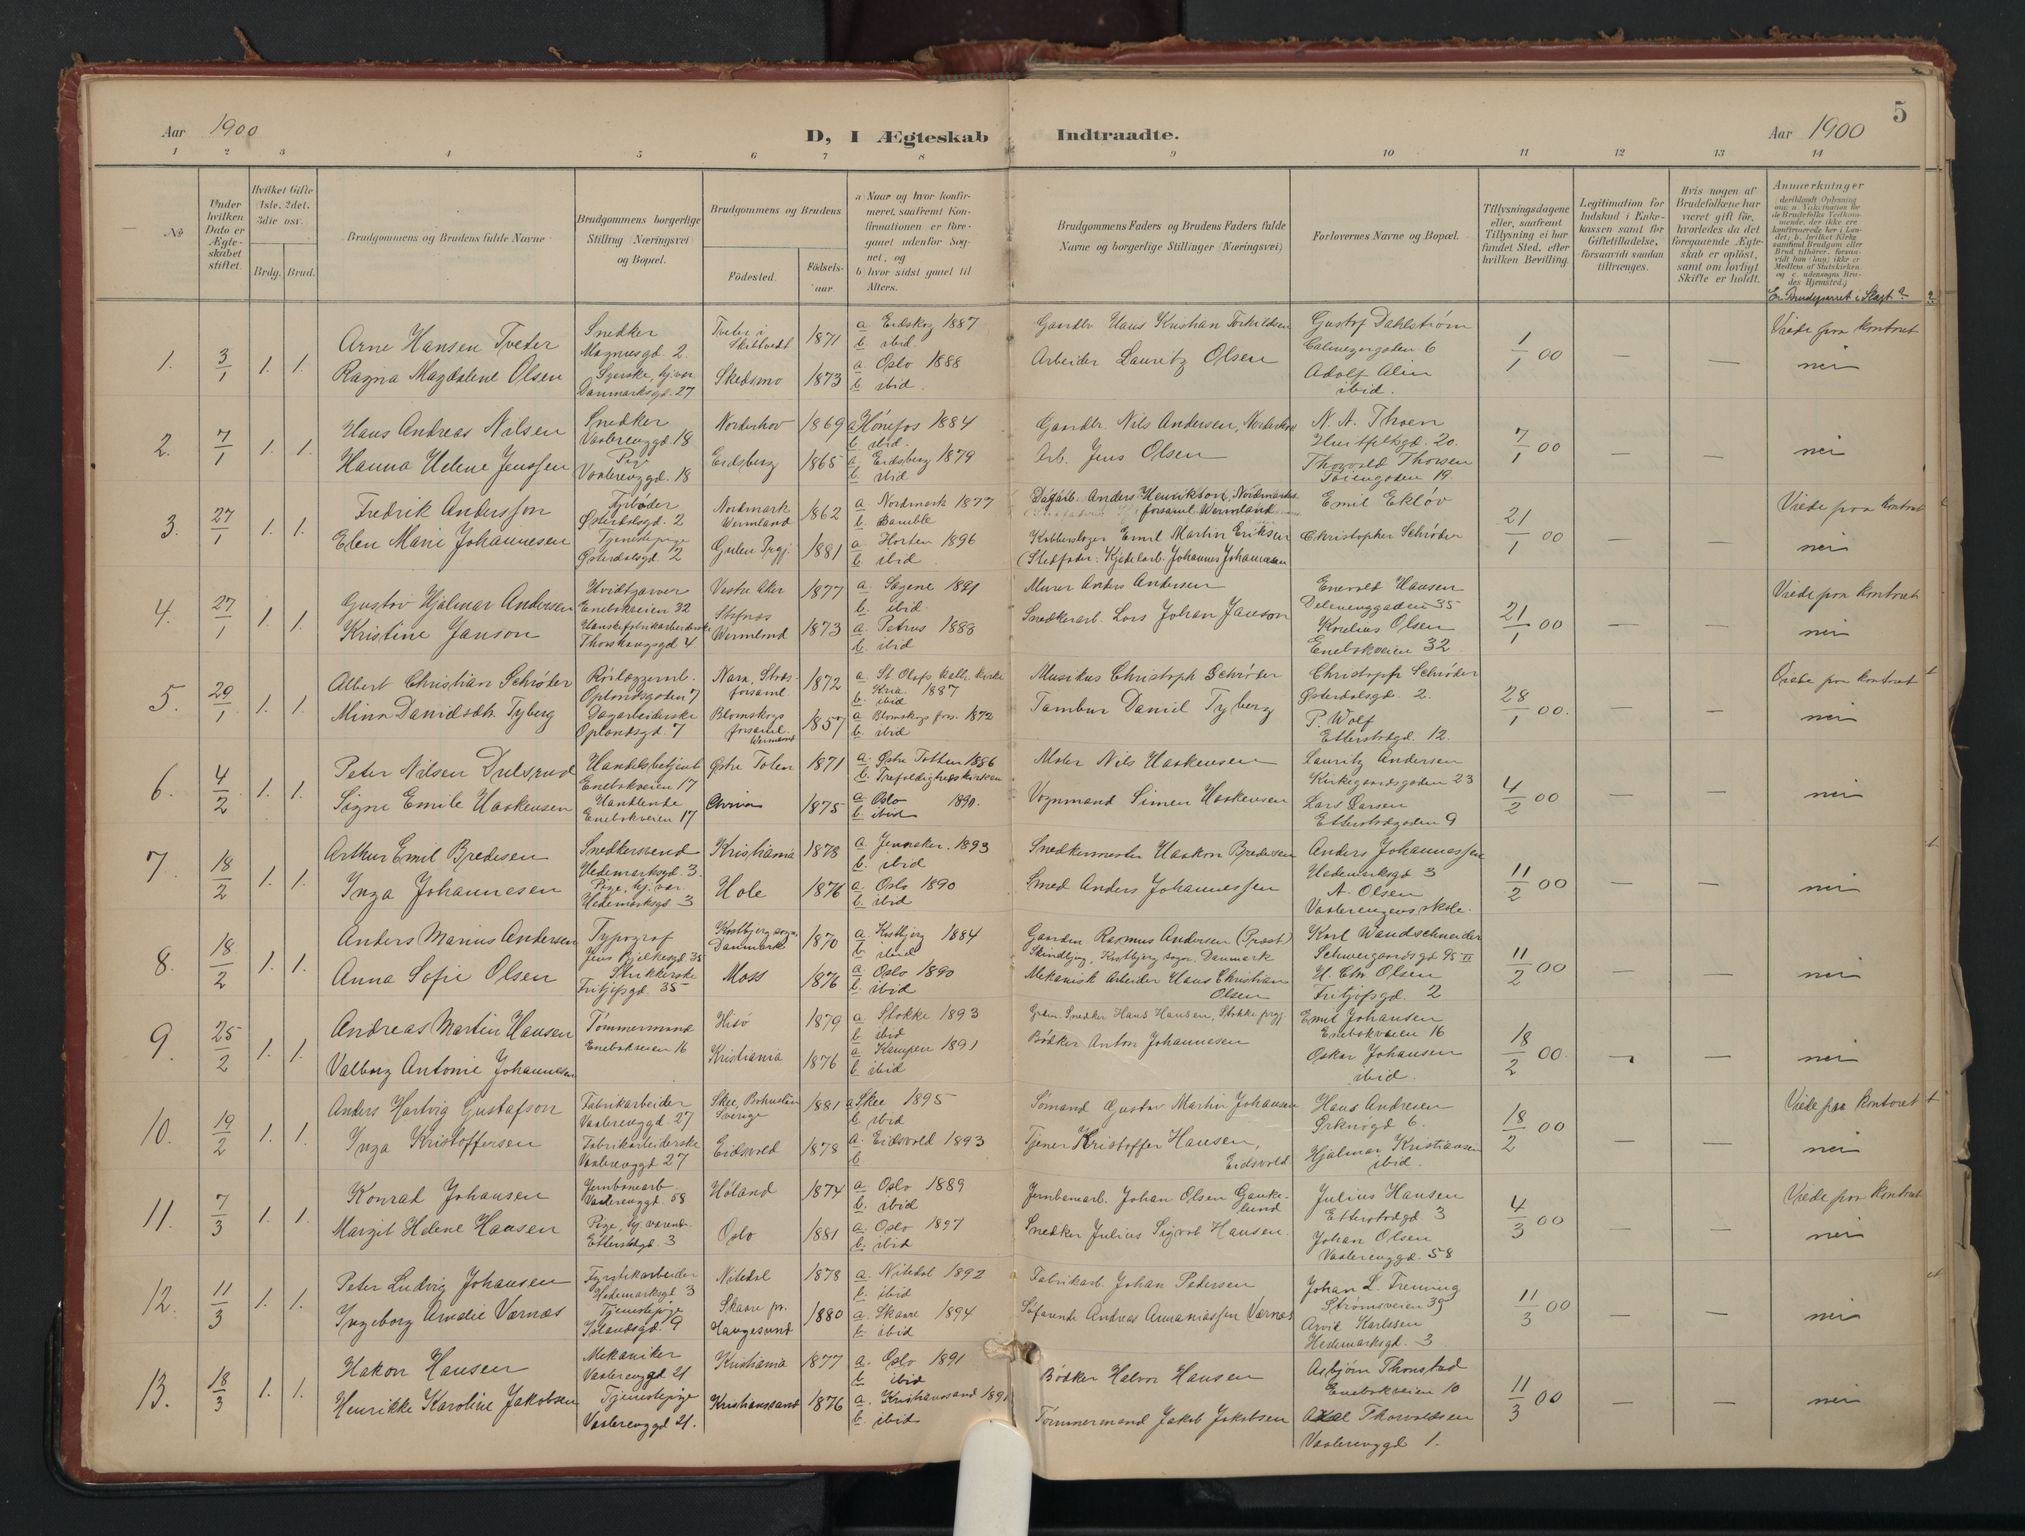 5
Aar 1900
D, I Ægteskab Indtraadte.
Aar 1900
1 2 3 4 5 6 7 8 9 10 11 12 13 14
No
Under hvilken Dato er Ægteskabet stiftet.
Hvilket Gifte 1ste, 2det, 3die osv.
Brdg. Brud.
Brudgommens og Brudens fulde Navne
Brudgommens borgerlige Stilling (Næringsvei) og Bopæl.
Brudgommens og Brudens
Födested.
Födselsaar.
a Naar og hvor konfirmeret, saafremt Konfirmationen er foregaaet udenfor Sognet, og
b hvor sidst gaaet til Alters.
Brudgommens Faders og Brudens Faders fulde Navne og borgerlige Stillinger (Næringsvei)
Forlovernes Navne og Bopæl.
Tillysningsdagene eller, saafremt Tillysning ei har fundet Sted, efter hvilken Bevilling.
Legitimation for Indskud i Enkekassen samt for Giftetilladelse, forsaavidt saadan tiltrænges.
Hvis nogen af Brudefolkene har været gift för, hvorledes da det foregaaende Ægteskab er oplöst, samt om lovligt Skifte er holdt.
Anmærkninger
Er Brudeparret i Slægt?
1. 3/1 1. 1.
Arne Hansen Tveter
Snedker
Magnusgd. 2.
Tveter i
1871
a Eidskog 1887
b. ibid
Gaardbr. Hans Kristian Torkildsen
Gustaf Dahlstrøm
6
1/1 00 — —
Viede paa kontoret
Ragna Magdalene Olsen
Syerske, hj. var.
Danmarksgd. 27
Skedsmo
1873
a Oslo 1888
b. ibid.
Arbeider Lauritz Olsen
Adolf Alin
ibid.
nei
2. 7/1 1. 1.
Hans Andreas Nilsen
Snedker
Vaalerenggd. 18
Norderhov
1869
a Hønefos 1884
b. ibid.
Gaardbr. Nils Andersen, Norderhov
N. A. Thoen
20.
7/1 00 — —
nei
Hanna Helene Jenssen
Pige
Vaalerenggd. 18
Eidsberg
1865
a. Eidsberg 1879
b. ibid
Arb. Jens Olsen
Thorvald Thorsen
Tøiengaden 19.
3. 27/1 1. 1.
Fredrik Andersson
Fyrbøder
Østerdalsgd. 2
Nordmark
Wermland
1862
a. Nordmark 1877
b. Bamble
Dagarb. Anders Henrikson, Nordmarks
forsaml. Wermland
Emil Ekløv
21/1 00 — —
Viede paa kontoret
Elen Marie Johannesen
Tjenestepige
Østerdalsgd. 2
Gulen Prgj.
1881
a. Horten 1896
b. ibid
Kobberslager Emil Martin Eriksen
(Stedfader: Kjedelarb. Johannes Johannesen
Christopher Schrøder
nei
4. 27/1 1. 1.
Gustav Hjalmar Andersen
Hvidtgarver
Enebakveien 32
Vestre Aker
1877
a. Sagene 1891
b. ibid.
Murer Anders Andersen
Enevold Hansen
Delenenggaden 35
21/1 00 — —
Viede paa kontoret
Kristine Janson
Hanskefabrikarbeiderske
Thorshaugsgd 4
Stafnæs
Wermland
1873
a. Petrus 1888
b. ibid
Snedkerarb. Lars Johan Janson
Kornelius Olsen
Enebakveien 32
nei
5. 29/1 1. 1.
Albert Christian Schrøder
Rørlæggerarb.
Oplandsgaden 7
1872
a. St Olafs kath. kirke
Kria. 1887
b. ibid
Musikus Christoph Schrøder
Christoph Schrøder
Østerdalsgd. 2.
28/1 00. — —
Viede paa kontoret
Mina Danielsdtr. Tyberg
Dagarbeiderske
Oplandsgd. 7
Blomskogs
forsaml.
Wermland
1857
a Blomskogs fors. 1872
b. ibid
Tambur Daniel Tyberg
P. Wolf
Etterstadgd. 12.
nei
6. 4/2 1. 1.
Peter Nilsen Dulsrud
Handelsbetjent
Enebakveien 17
Østre Toten
1871
a. Østre Totten 1886
b. Trefoldighedskirken
Maler Nils Haakensen
Lauritz Andersen
Kirkegaardsgaden 23
4/2 00 — —
nei
Signe Emilie Haakensen
Handlende
Enebakveien 17
Chria
1875
a. Oslo 1890.
b. ibid
Vognmand Simen Haakensen
Lars Larsen
Etterstadgaden 9
7. 18/2 1. 1.
Arthur Emil Bredesen
Snedkersvend
Hedemarksgd. 3.
Kristiania
1873
a. 1893
b. ibid
Snedkermester Haakon Bredesen
Anders Johannessen
Hedemarksgd 3
11/2 00 — —
nei
Inga Johannesen
Pige, hj. var.
Hedemarksgd 3
Hole
1876
a Oslo 1890
b. ibid
Smed Anders Johannessen
A. Olsen
Vaalerengens skole.
8. 18/2 1. 1.
Anders Marius Andersen
Typograf
Jens Bjelkesgd 35
Kostbjerg sogn,
Danmark
1870
a. Kostbjerg 1884
b. ibid
Gaarden Rasmus Andersen (Præst)
Skindbjerg, Kostbjerg sogn, Danmark
Karl Wandschneider
Schweigaardsgd 95 II
11/2 00 — —
Anna Sofie Olsen
Strikkerske
Fritjofsgd. 35
Moss
1876
a Oslo 1890
b. ibid
Mekanisk Arbeider Hans Christian
Olsen
H. Chr. Olsen
Fritjofsgd. 2
nei
9. 25/2 1. 1.
Andreas Martin Hansen
Tømmermand
Enebakveien 16
Hisø
1879
a Stokke 1893
b. ibid
Snedker Hans Hansen, Stokke prgj.
Emil Johansen
Enebakveien 16
18/2 00. — —
nei
Valborg Antonie Johannesen
Kristiania
1876
a Kampen 1891
b. ibid
Bødker Anton Johannesen
Oskar Johansen
ibid.
10. 19/2 1. 1.
Anders Hartvig Gustafson
Fabrikarbeider
Vaalerenggd. 27
Skee, Bohuslän
Sverige
1881
a Skee 1895
b. ibid
Sømand Gustav Martin Johansen
Hans Andresen
6.
18/2 00 — —
Viede paa kontoret
Inga Kristoffersen
Fabrikarbeiderske
Vaalerenggd 27
Eidsvold
1878
a. Eidsvold 1893
b.
Tjener Kristoffer Hansen,
Eidsvold
Hjalmar Kristiansen
ibid.
nei
11. 7/3 1. 1.
Konrad Johansen
Jernbanearb.
Vaalerenggd. 58
Høland
1874
a. Oslo 1889
b. ibid
Jernbanearb. Johan Olsen Gaukelund
Julius Hansen
Etterstadgd. 3
4/3 00 — —
Viede paa kontoret
Margit Helene Hansen
Pige, hj. værende
Etterstadgd. 3
Oslo
1881
a. Oslo 1897
b. ibid
Snedker Julius Sigvat Hansen.
Johan Olsen
Vaalerenggd. 58
nei
12. 11/3 1. 1.
Peter Ludvig Johansen
Fyrstikarbeider
Hedemarksgd 3
Nitedal
1878
a. Nitedal 1892
b. ibid
Fabrikarb. Johan Pedersen
Johan L. Frenning
Strømsveien 39
11/3 00 — —
nei
Ingeborg Amalie Værnæs
Tjenestepige
Islandsgd. 9
Skaare pr.
Haugesund
1880
a. Skaare 1894
b. ibid
Søfarende Andreas Annaniassen Værnæs
Arvid Karlssen
Hedemarksgd. 3
13. 18/3 1. 1.
Hakon Hansen
Mekaniker
Vaalerenggd 21
Kristiania
1877
a. Oslo 1891
b. ibid
Bødker Halvor Hansen
Asbjørn Thonstad
Enebakveien 10
11/3 00 — —
nei
Henrikke Karoline Jakobsen
Tjenestepige
Vaalerenggd. 21.
Kristianssand
1876
a. Kristianssand 1891
b. ibid
Tømmermand Jakob Jakobsen
Axel Thorvaldsen
Vaalerenggd 1.